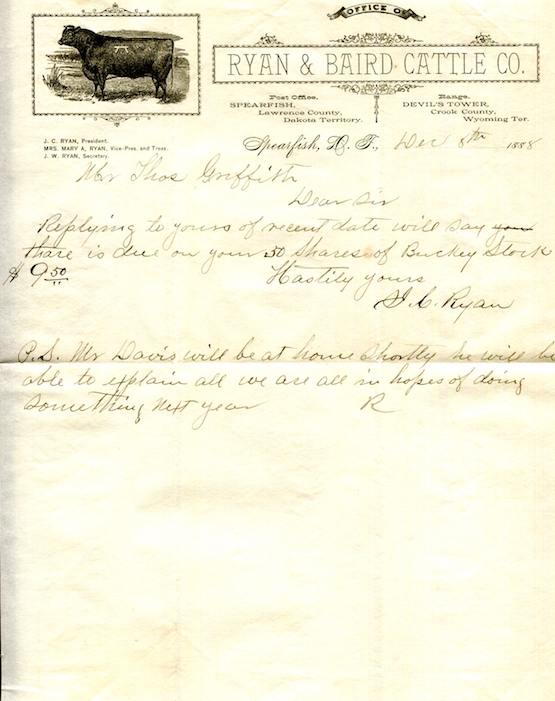 OFFICE OF
RYAN & BAIRD CATTLE CO.
Post Office,
SPEARFISH,
Lawrence County,
Dakota Territory.
Range,
DEVIL'S TOWER,
Crook County,
Wyoming Ter.
J. C. RYAN, President.
MRS. MARY A. RYAN, Vice-Pres. and Treas.
J. W. RYAN, Secretary.
Spearfish, D. T., Dec 8th 1888
Mr Thos Griffith
Dear Sir
Replying to yours of recent date will say your
thare is due on your 50 Shares of Buckey Stock
$ 9.50
Hastily yours
J. C. Ryan
P.S. Mr Davis will be at home Shortly he will be
able to explain all we are all in hopes of doing
Something next year R